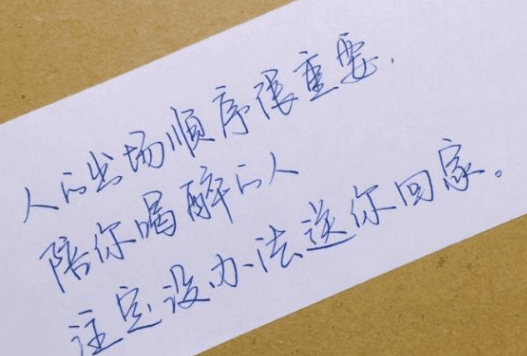 人的出场顺序很重要,
陪你喝醉的人
注定没办法送你回家。